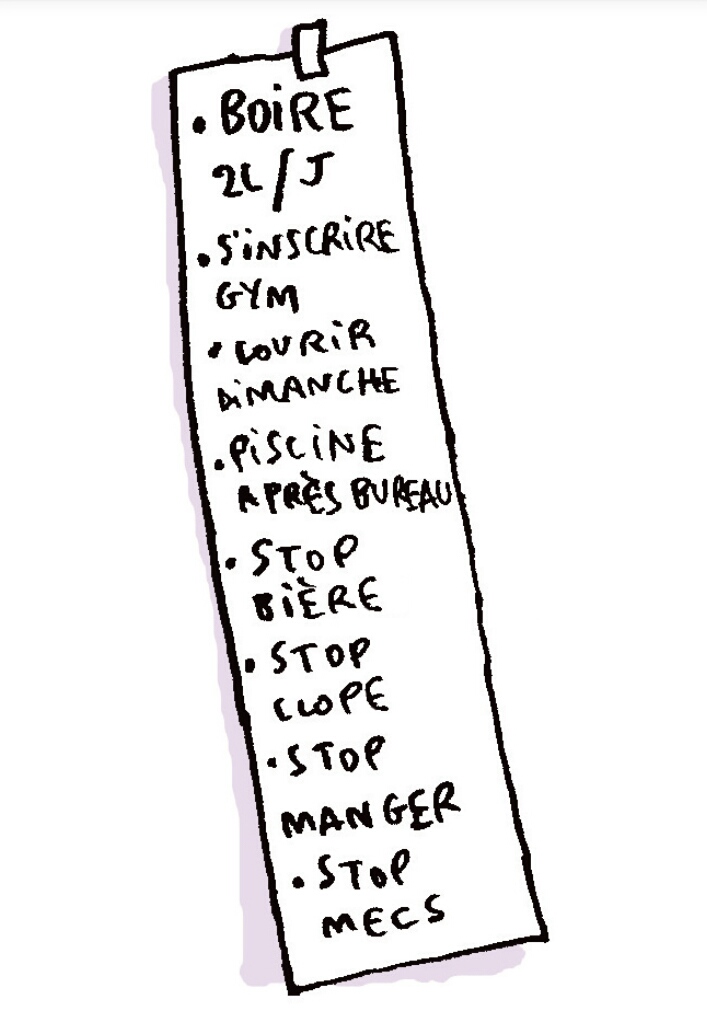 • BOIRE
2L/J
• S'INSCRIRE
GYM
• COURIR
DIMANCHE
• PISCINE
APRÈS BUREAU
• STOP
BIÈRE
• STOP
CLOPE
• STOP
MANGER
• STOP
MECS